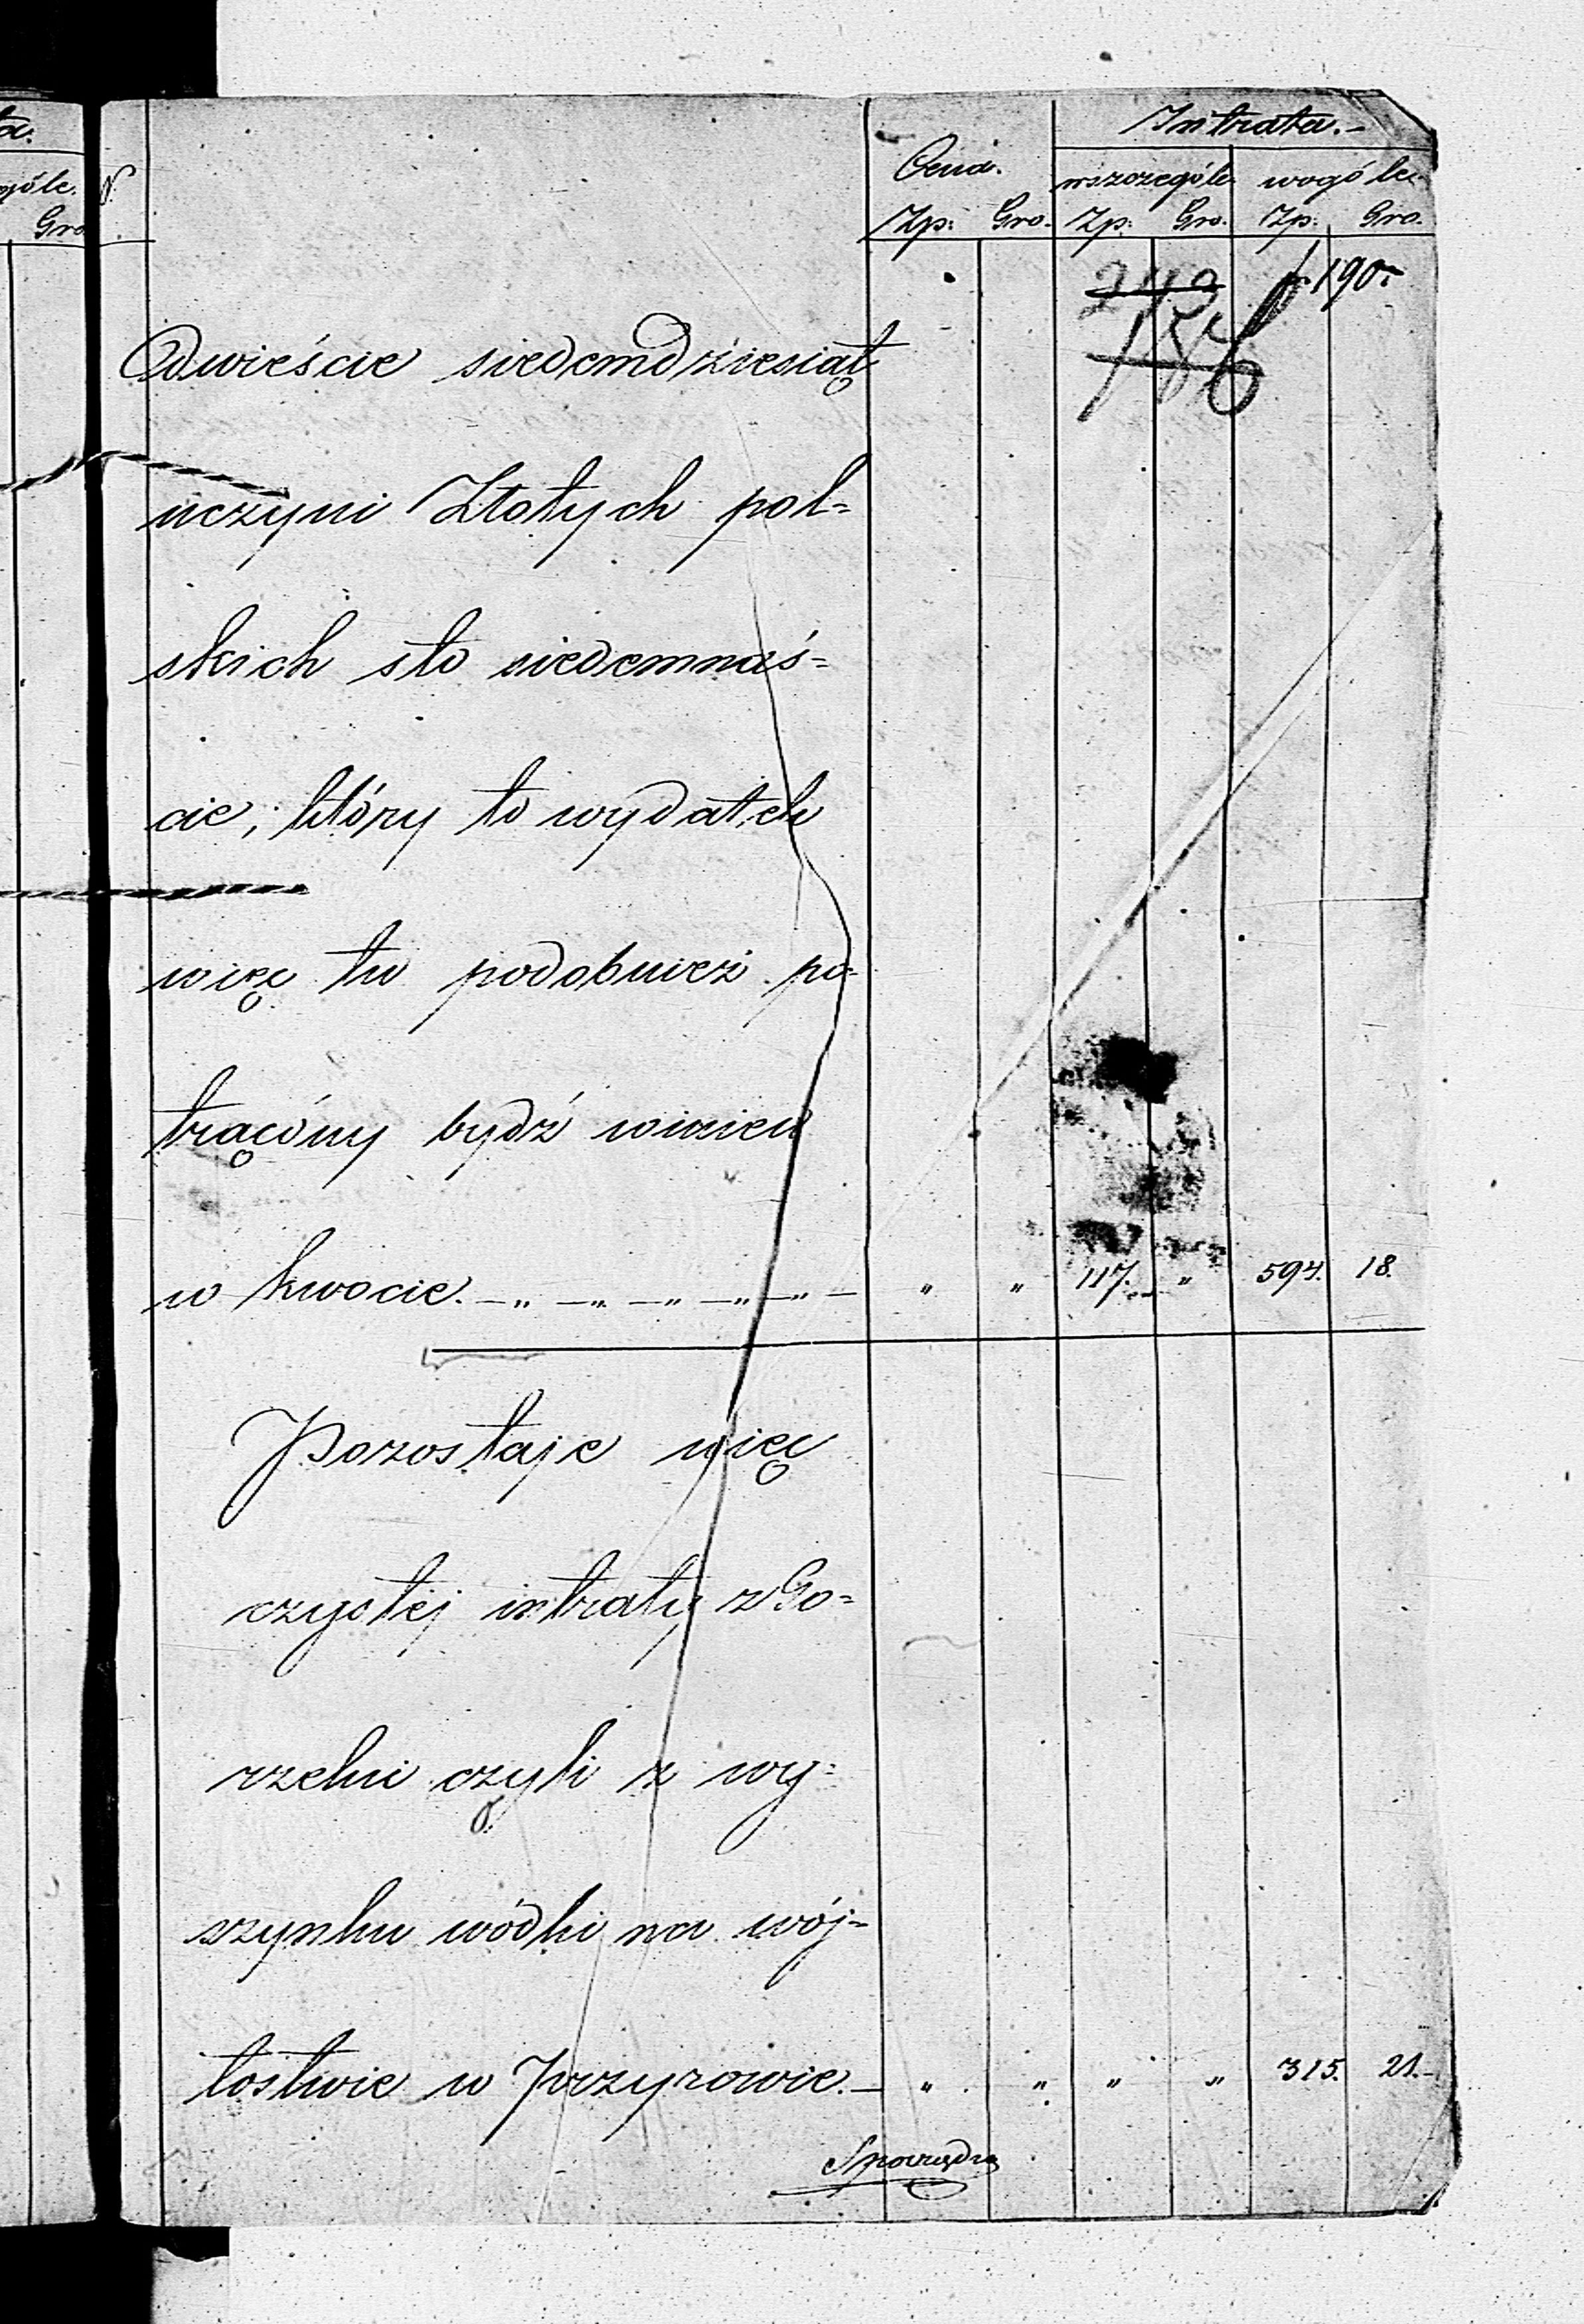 ta.
ogóle.
Gro
N.
Intrata.-
Cena.
wszczególe
wogóle
Zp: Gro. Zp: Gro. Zp: Gro.
243 f. 190.
186
dwieście siedemdziesiąt
uczyni Złotych pol=
skich sto siedemnaś=
cie; który to wydatek
więc tu podobnież po=
trącony bydź winien
w kwocie. „ „ 117. „ 594. 18.
Pozostaje więc
czystéj intraty z Go=
rzelni czyli z wy=
szynku wódki na wój=
tostwie w Przyrowie. „ „ „ „ 315. 21.-